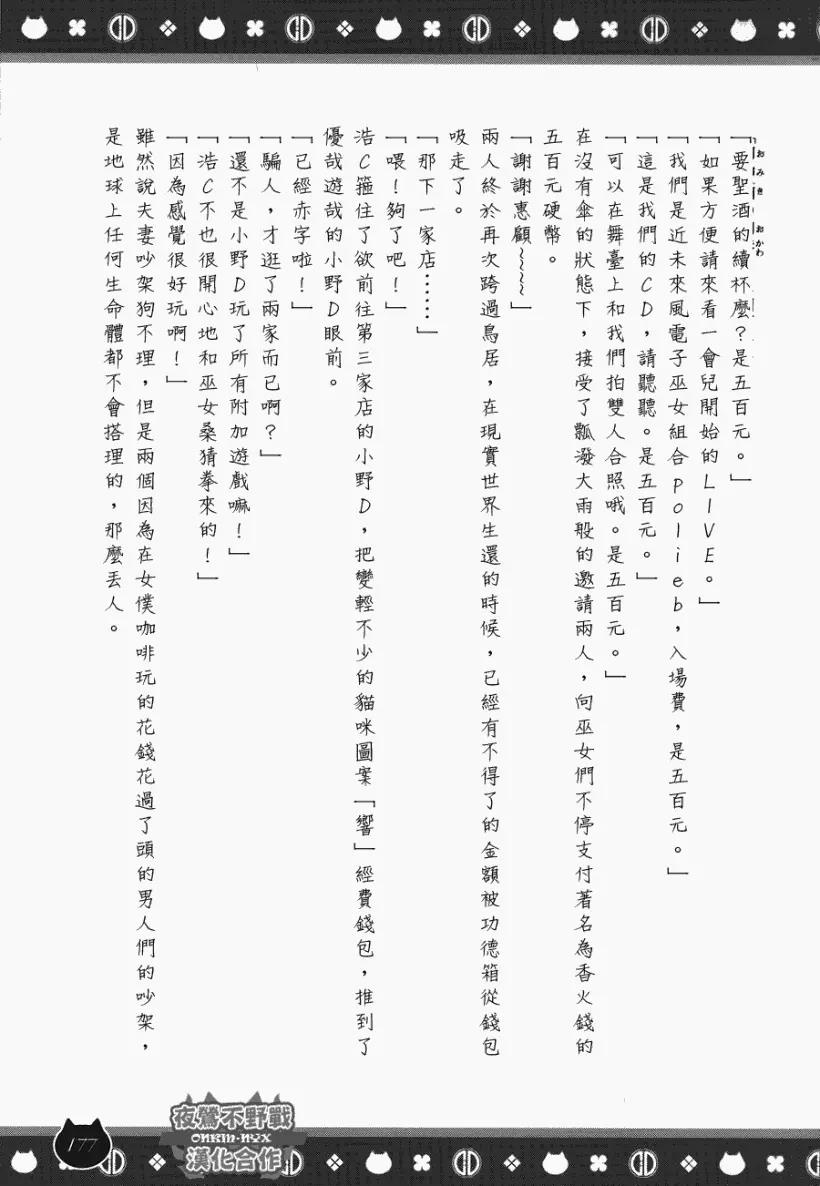 「要聖酒的續杯麼？是五百元。」
おみき
おかわ
「如果方便請來看一會兒開始的LIVE。」
「我們是近未來風電子巫女組合polieb，入場費，是五百元。」
「這是我們的CD，請聽聽。是五百元。」
「可以在舞臺上和我們拍雙人合照哦。是五百元。」
在沒有傘的狀態下，接受了瓢潑大雨般的邀請兩人，向巫女們不停支付著名為香火錢的
五百元硬幣。
「謝謝惠顧～～～～」
兩人終於再次跨過鳥居，在現實世界生還的時候，已經有不得了的金額被功德箱從錢包
吸走了。
「那下一家店……」
「喂！夠了吧！」
浩C箍住了欲前往第三家店的小野D，把變輕不少的貓咪圖案「響」經費錢包，推到了
優哉遊哉的小野D眼前。
「已經赤字啦！」
「騙人，才逛了兩家而已啊？」
「還不是小野D玩了所有附加遊戲嘛！」
「浩C不也很開心地和巫女桑猜拳來的！」
「因為感覺很好玩啊！」
雖然說夫妻吵架狗不理，但是兩個因為在女僕咖啡玩的花錢花過了頭的男人們的吵架，
是地球上任何生命體都不會搭理的，那麼丟人。
177
夜鶯不野戰
ONKIN·NYX
漢化合作